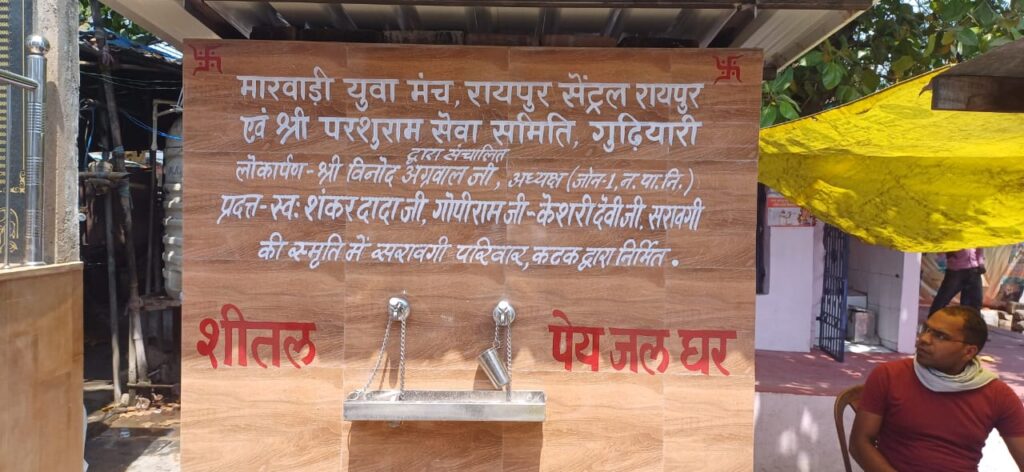 मारवाड़ी युवा मंच, रायपुर सेंट्रल रायपुर
एवं श्री परशुराम सेवा समिति, गुढ़ियारी
द्वारा संचालित
लोकार्पण - श्री विनोद अग्रवाल जी, अध्यक्ष (जोन-1, न. पा. नि.)
प्रदत्त - स्व: शंकर दादा जी, गोपीराम जी - केशरी देवी जी, सरावगी
की स्मृति में सरावगी परिवार, कटक द्वारा निर्मित .
शीतल पेय जल घर